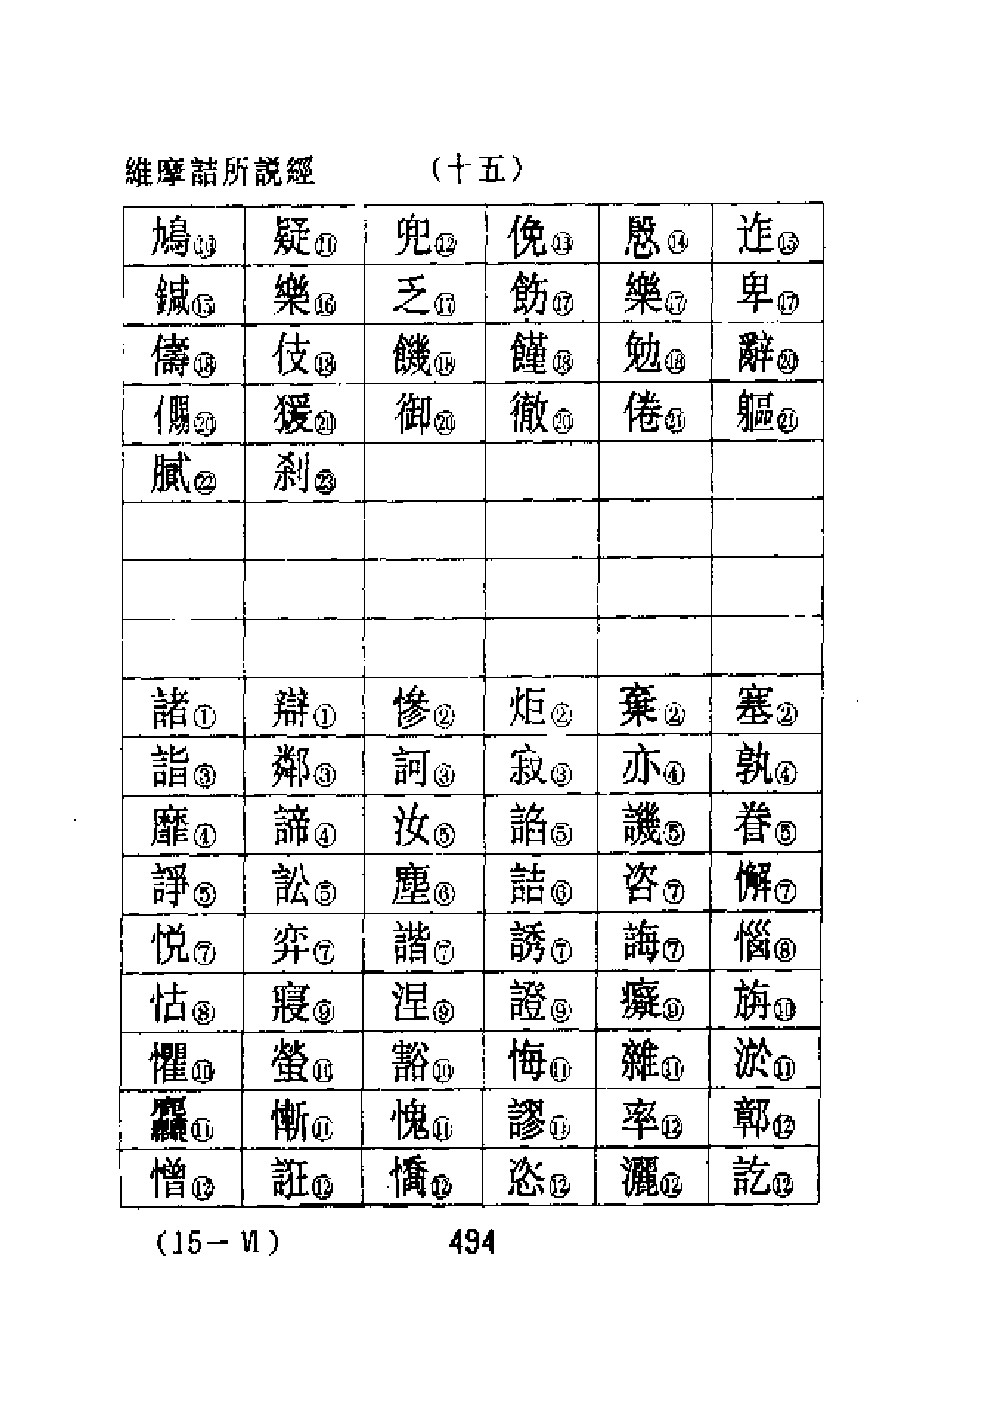 維摩詰所説經 (十五)
鳩⑩ 疑⑪ 兜⑫ 俛⑬ 慇⑭ 迮⑮
鍼⑮ 樂⑯ 乏⑰ 飭⑰ 樂⑰ 卑⑰
儔⑱ 伎⑱ 饑⑱ 饉⑱ 勉⑱ 辭⑳
㒓⑳ 猨⑳ 御⑳ 徹⑳ 倦㉑ 軀㉑
膩㉒ 刹㉓
諸① 辯① 慘② 炬② 棄② 塞②
詣③ 鄰③ 訶③ 寂③ 亦④ 孰④
靡④ 諦④ 汝⑤ 諂⑤ 譏⑤ 眷⑤
諍⑤ 訟⑤ 塵⑥ 詰⑥ 咨⑦ 懈⑦
悦⑦ 弈⑦ 諧⑦ 誘⑦ 誨⑦ 惱⑧
怙⑧ 寢⑨ 涅⑨ 證⑨ 癡⑨ 旃⑩
懼⑩ 螢⑩ 豁⑩ 悔⑪ 雜⑪ 淤⑪
慚⑪ 愧⑪ 謬⑪ 率⑫ 鄣⑫
憎⑫ 誑⑫ 憍⑫ 恣⑫ 灑⑫ 訖⑫
(15-Ⅵ) 494